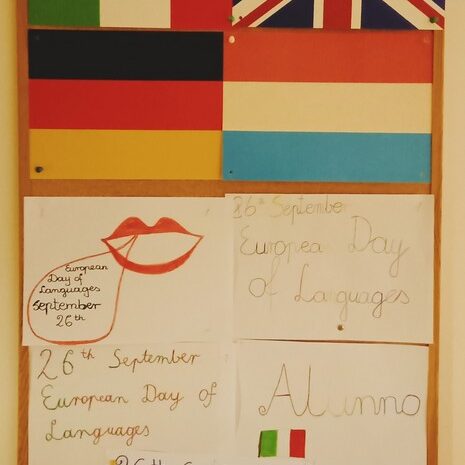 European
Day of
Languages
September
26th
16th Septembe
Europea Day
of Languages
26th September
European Day of
Languages
Alunno
26th